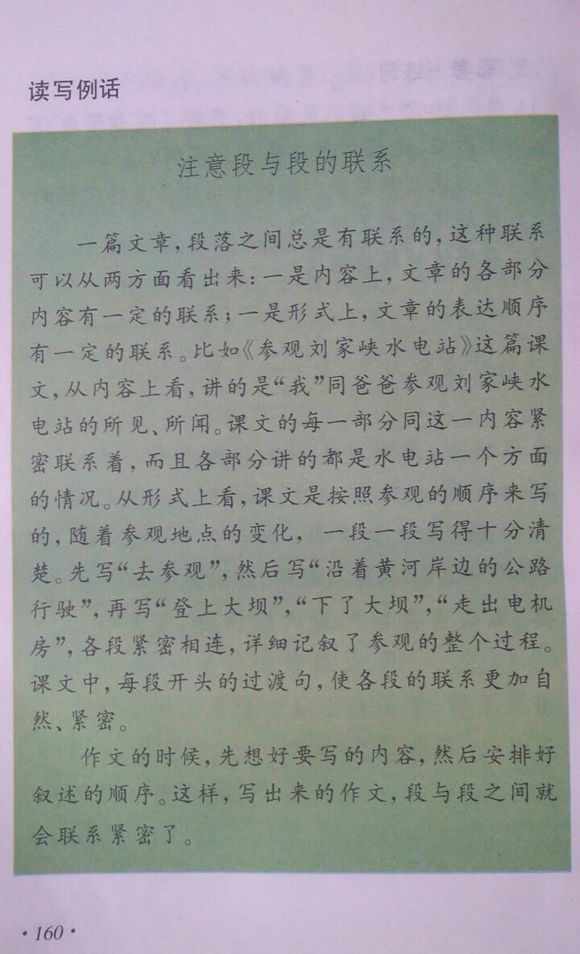 读写例话
注意段与段的联系
一篇文章,段落之间总是有联系的,这种联系
可以从两方面看出来:一是内容上,文章的各部分
内容有一定的联系;一是形式上,文章的表达顺序
有一定的联系。比如《参观刘家峡水电站》这篇课
文,从内容上看,讲的是“我”同爸爸参观刘家峡水
电站的所见、所闻。课文的每一部分同这一内容紧
密联系着,而且各部分讲的都是水电站一个方面
的情况。从形式上看,课文是按照参观的顺序来写
的,随着参观地点的变化,一段一段写得十分清
楚。先写“去参观”,然后写“沿着黄河岸边的公路
行驶”,再写“登上大坝”,“下了大坝”,“走出电机
房”,各段紧密相连,详细记叙了参观的整个过程。
课文中,每段开头的过渡句,使各段的联系更加自
然、紧密。
作文的时候,先想好要写的内容,然后安排好
叙述的顺序。这样,写出来的作文,段与段之间就
会联系紧密了。
·160·